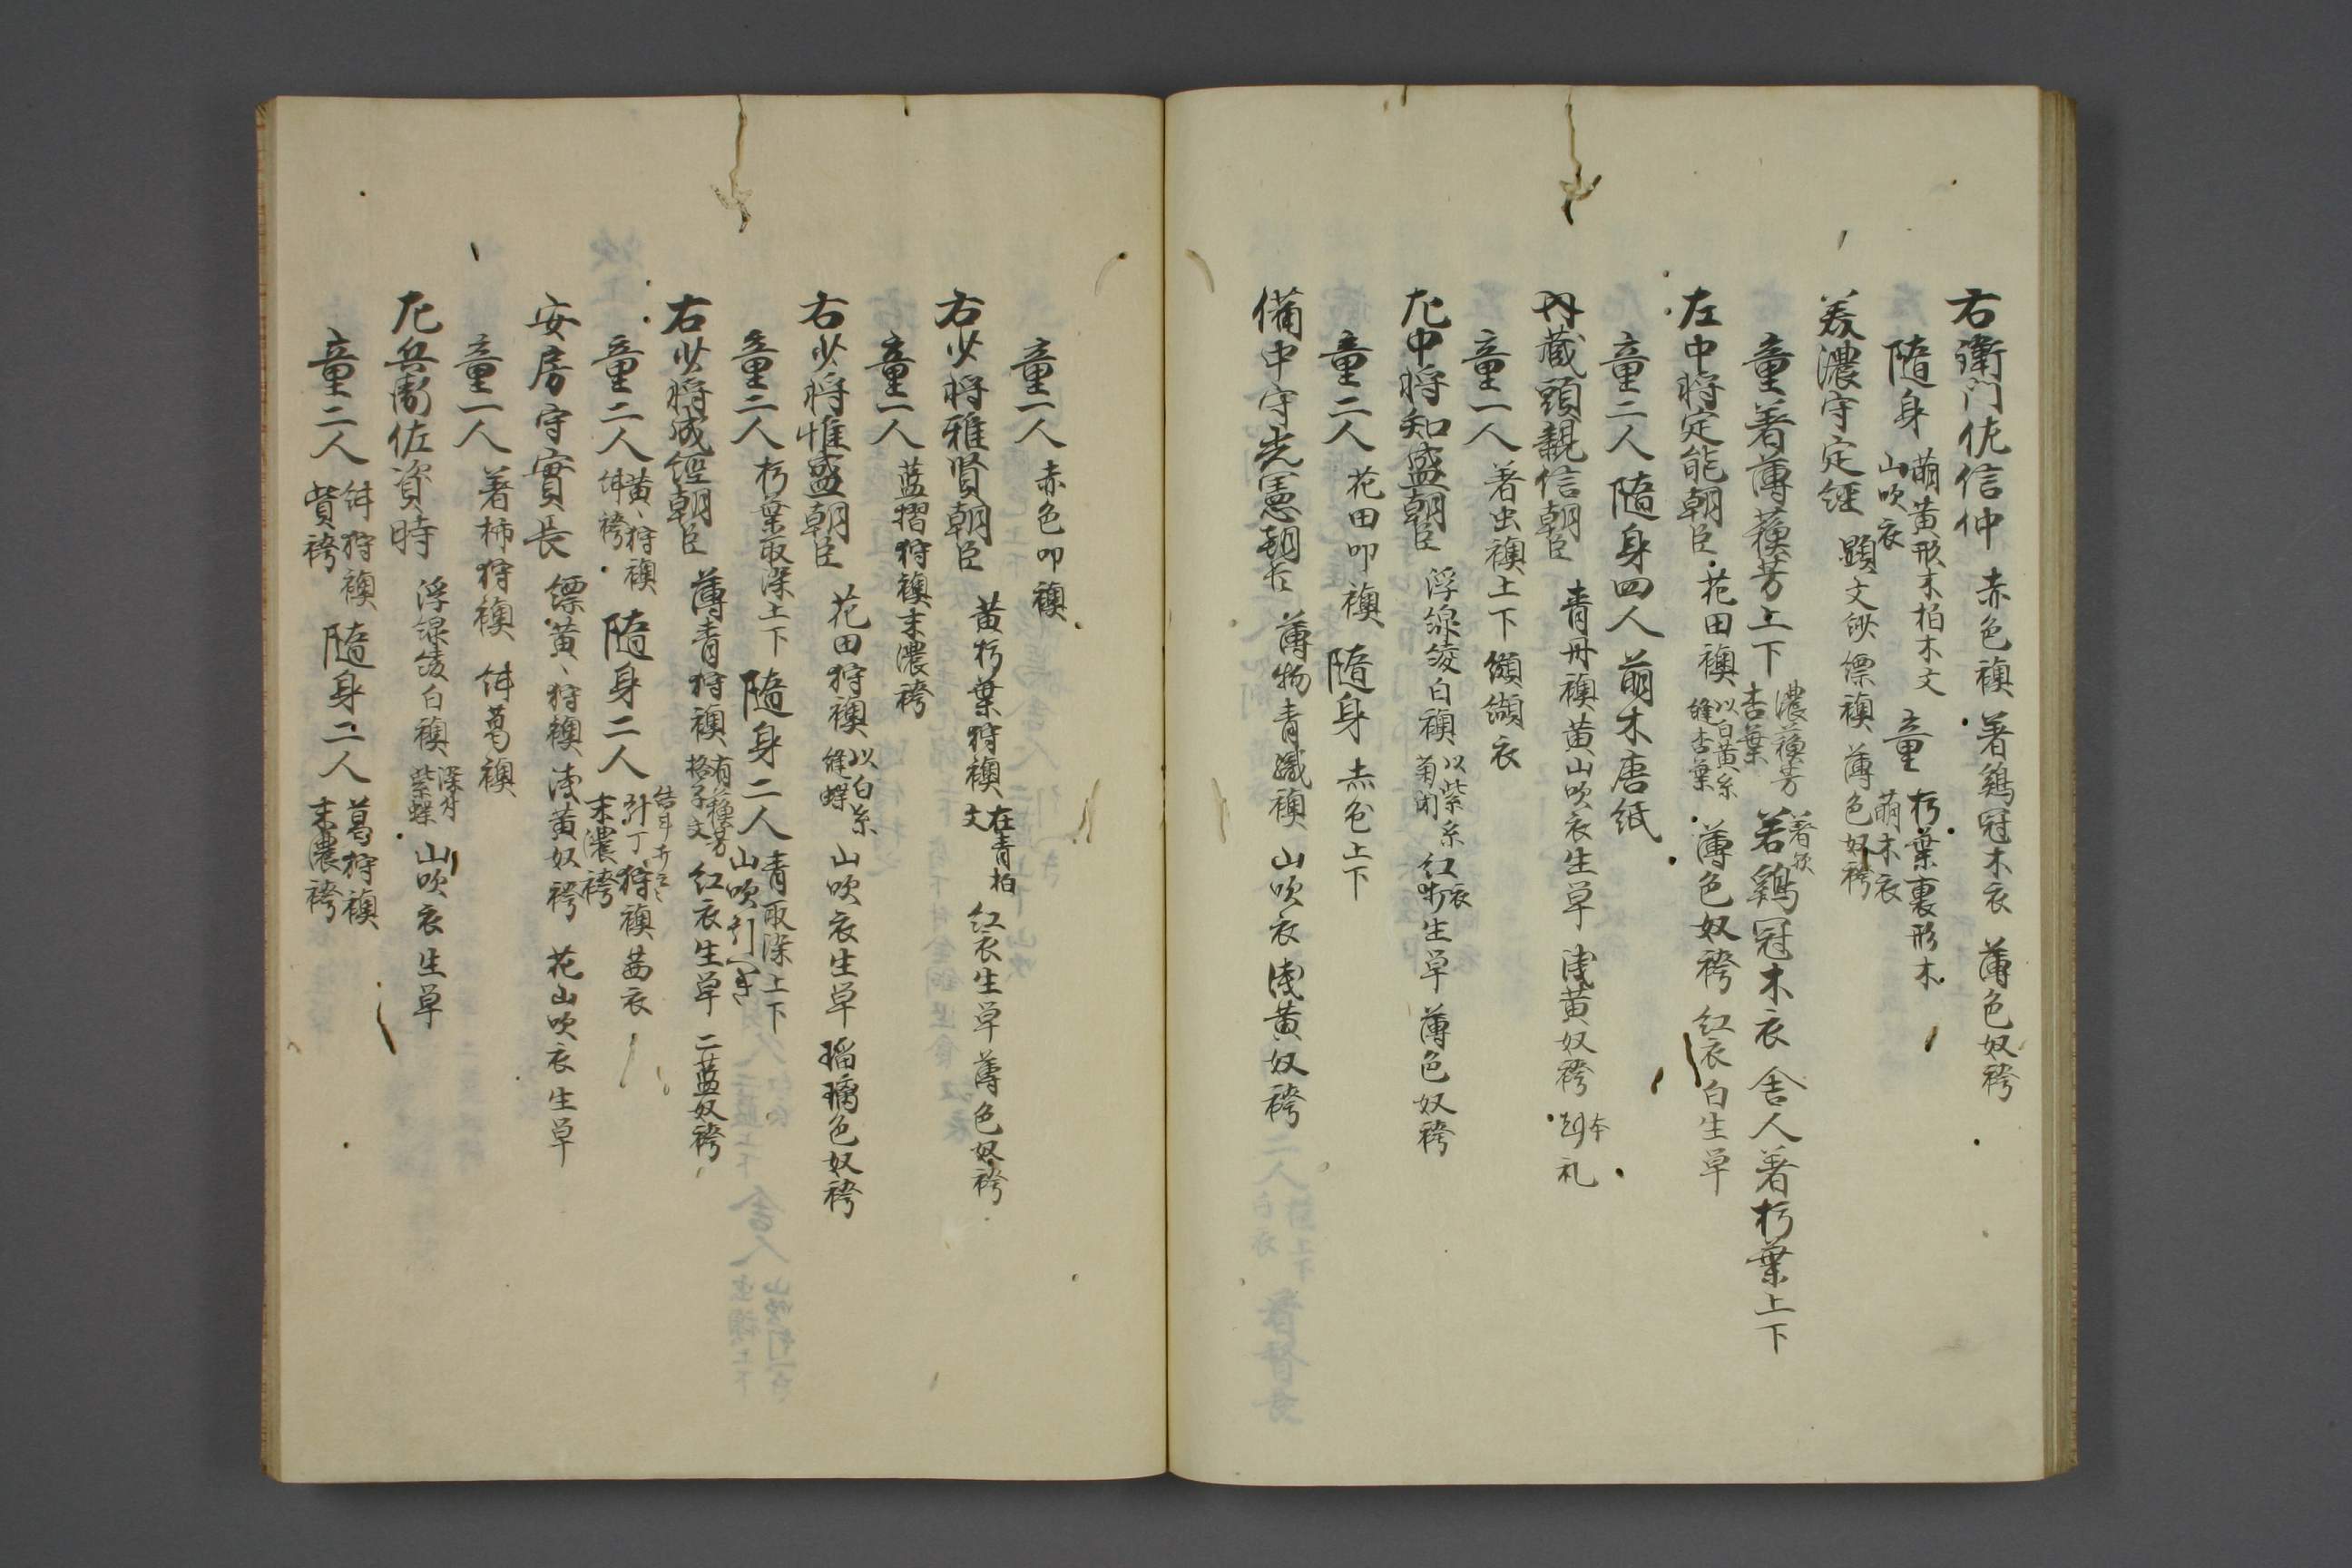 右衛門佐信仲 赤色襖 著鶏冠木衣 薄色奴袴
隨身 萌黄形木柏木文 山吹衣 童 朽葉裏形木 萌木衣
美濃守定經 顕文紗縹襖 薄色奴袴
童著薄蘇芳上下 濃蘇芳 杏葉 著 若鶏冠木衣 舎人著朽葉上下
左中将定能朝臣 花田襖 以白黄糸 縫杏葉 薄色奴袴 紅衣白生単
童二人 隨身四人 萌木唐紙
内蔵頭親信朝臣 青丹襖 黄山吹衣生単 浅黄奴袴 本 礼
童一人 著虫襖上下 纐纈衣
左中将知盛朝臣 浮線綾白襖 以紫糸 菊閉 紅衣 生単 薄色奴袴
童二人 花田叩襖 隨身 赤色上下
備中守光憲朝臣 薄物青織襖 山吹衣 浅黄奴袴
童一人 赤色叩襖
右少将雅賢朝臣 黄朽葉狩襖 在青柏文 紅衣生単 薄色奴袴
童一人 藍摺狩襖末濃袴
右少将惟盛朝臣 花田狩襖 以白糸 縫蝶 山吹衣生単 瑠璃色奴袴
童二人 朽葉取染上下 隨身二人 青取染上下 山吹引へき
右少将成経朝臣 薄青狩襖 有蘇芳 格子文 紅衣生単 二藍奴袴
童二人 黄〻狩襖 袴 隨身二人 狩襖 茜衣 末濃袴
安房守實長 縹黄〻狩襖 浅黄奴袴 花山吹衣生単
童一人 著柿狩襖 葛襖
左兵衛佐資時 浮線綾白襖 紫蝶 山吹衣生単
童二人 狩襖 袴 隨身二人 葛狩襖 末濃袴